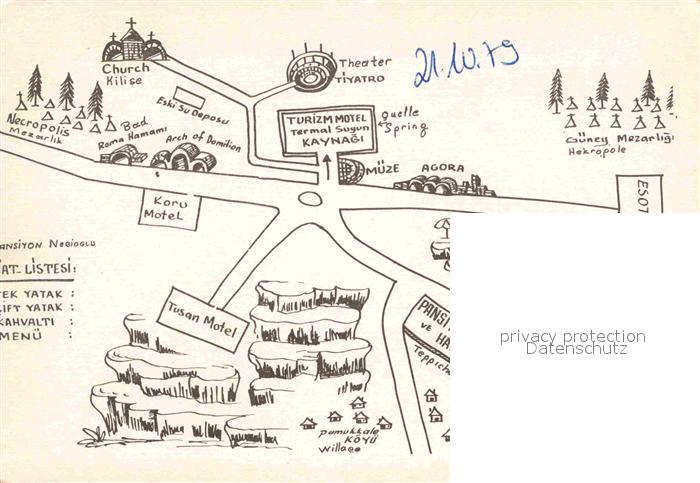 21.10.79
Church
Kilise
Theater
TİYATRO
Eski Su Deposu
TURİZM MOTEL
Termal Suyun
KAYNAĞI
Quelle
Spring
Necropolis
Mezarlık
Bad
Roma Hamamı
Arch of Domition
MÜZE
AGORA
Güney Mezarlığı
Nekropole
Koru
MoteL
ANSİYON NEBİOĞLU
AT-LİSTESİ:
TEK YATAK :
ÇİFT YATAK :
KAHVALTI :
MENÜ :
Tusan Motel
PANSİ
ve HA
Teppich
pamukkale
KÖYÜ
Willage
privacy protection
Datenschutz